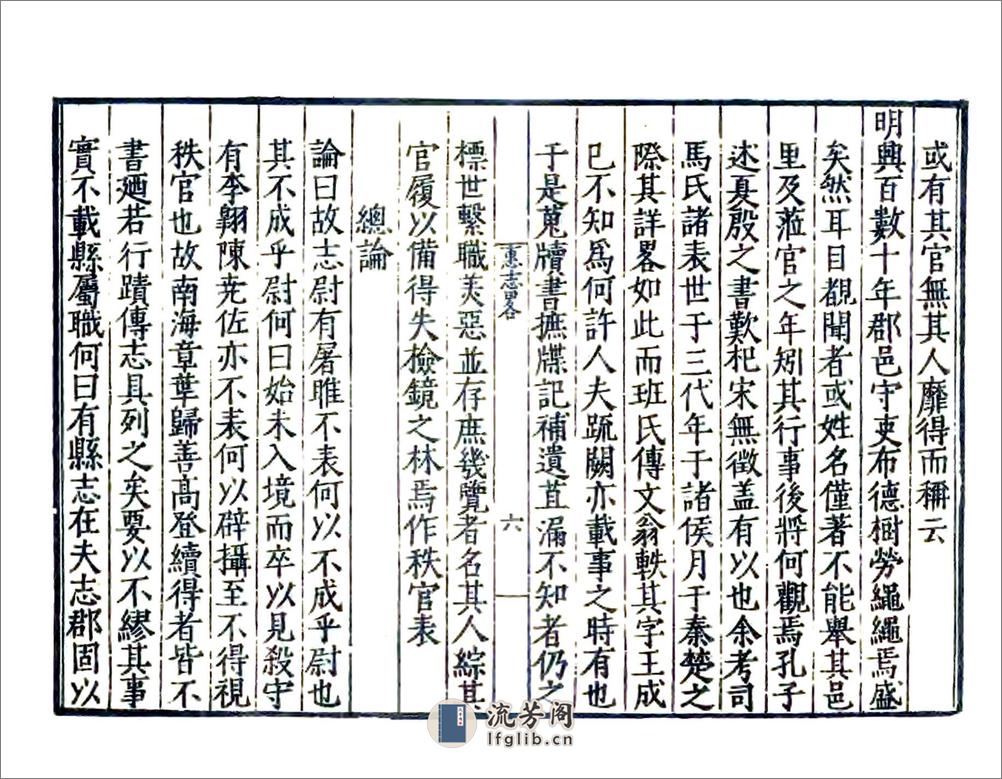 或有其官無其人靡得而稱云
明興百數十年郡邑守吏布德樹勞繩繩焉盛
矣然耳目覩聞者或姓名僅著不能舉其邑
里及蒞官之年矧其行事後將何觀焉孔子
述夏殷之書歎杞宋無徵盖有以也余考司
馬氏諸表世于三代年于諸侯月于秦楚之
際其詳畧如此而班氏傳文翁軼其字王成
已不知爲何許人夫䟽闕亦載事之時有也
于是蒐牘書摭牒記補遺苴漏不知者仍之
惠志畧
六
標世繫職美惡並存庶幾覽者名其人綜其
官履以備得失檢鏡之林焉作秩官表
總論
論曰故志尉有屠睢不表何以不成乎尉也
其不成乎尉何曰始未入境而卒以見殺守
有李翱陳尭佐亦不表何以辟攝至不得視
秩官也故南海章葦歸善高登續得者皆不
書廼若行蹟傳志具列之矣要以不繆其事
實不載縣屬職何曰有縣志在夫志郡固以
流芳阁
lfglib.cn